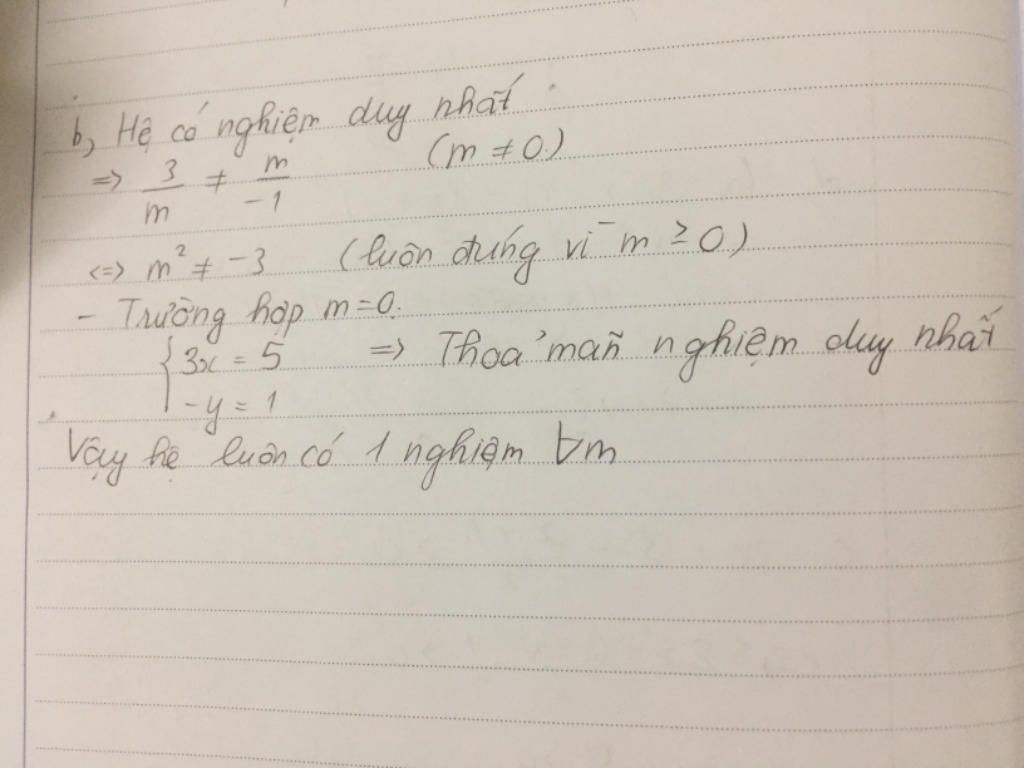 b, Hệ có nghiệm duy nhất
=> 3/m ≠ m/-1 (m ≠ 0)
<=> m² ≠ -3 (luôn đúng vì m ≥ 0)
- Trường hợp m=0.
{3x = 5 => Thoả mãn nghiệm duy nhất
-y = 1
Vậy hệ luôn có 1 nghiệm ∀m